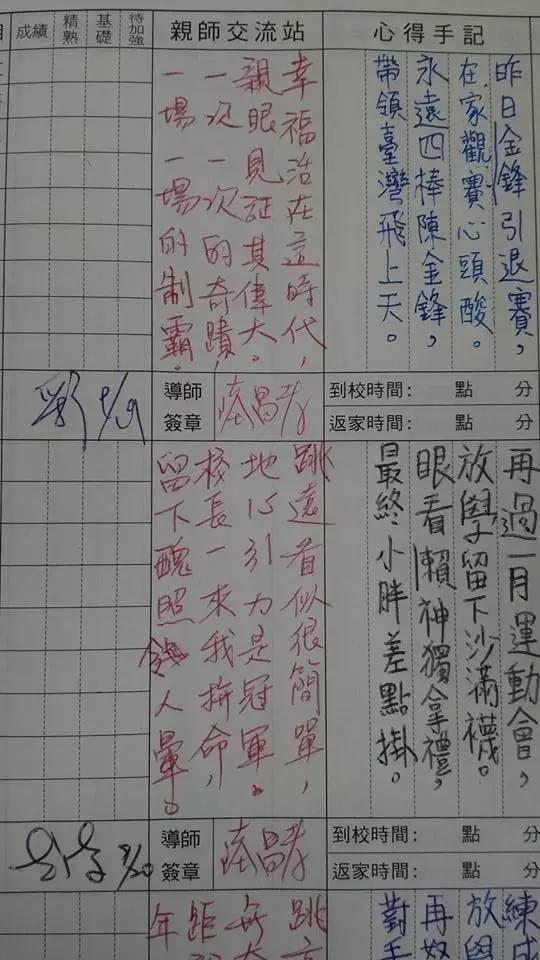 心得手記
親師交流站
待加強
基礎
精熟
成績
昨日金鋒引退賽，
在家觀賽心頭酸。
永遠四棒陳金鋒，
帶領臺灣飛上天。
幸福活在這時代，
親眼見証其偉大。
一次一次的奇蹟，
一場一場的制霸。
到校時間： 點 分
返家時間： 點 分
導師
簽章
再過一月運動會，
放學留下沙滿襪。
眼看賴神獨拿禮，
最終小胖差點掛。
跳遠看似很簡單，
地心引力是冠軍。
校長一來我拚命，
留下醜照人暈。
到校時間： 點 分
返家時間： 點 分
導師
簽章
9/20
練成
放學
再努
對手
跳
距
年